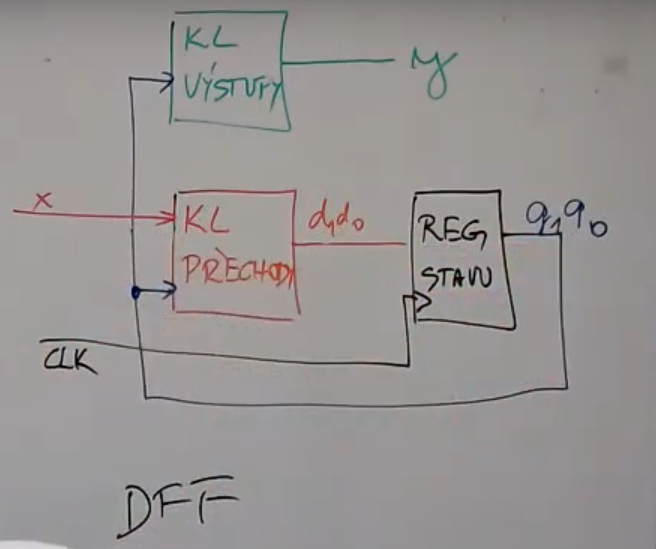 KL
VÝSTUPY
y
x
KL
PŘECHODY
d₁d₀
REG
STAVU
q₁q₀
CLK
DFF